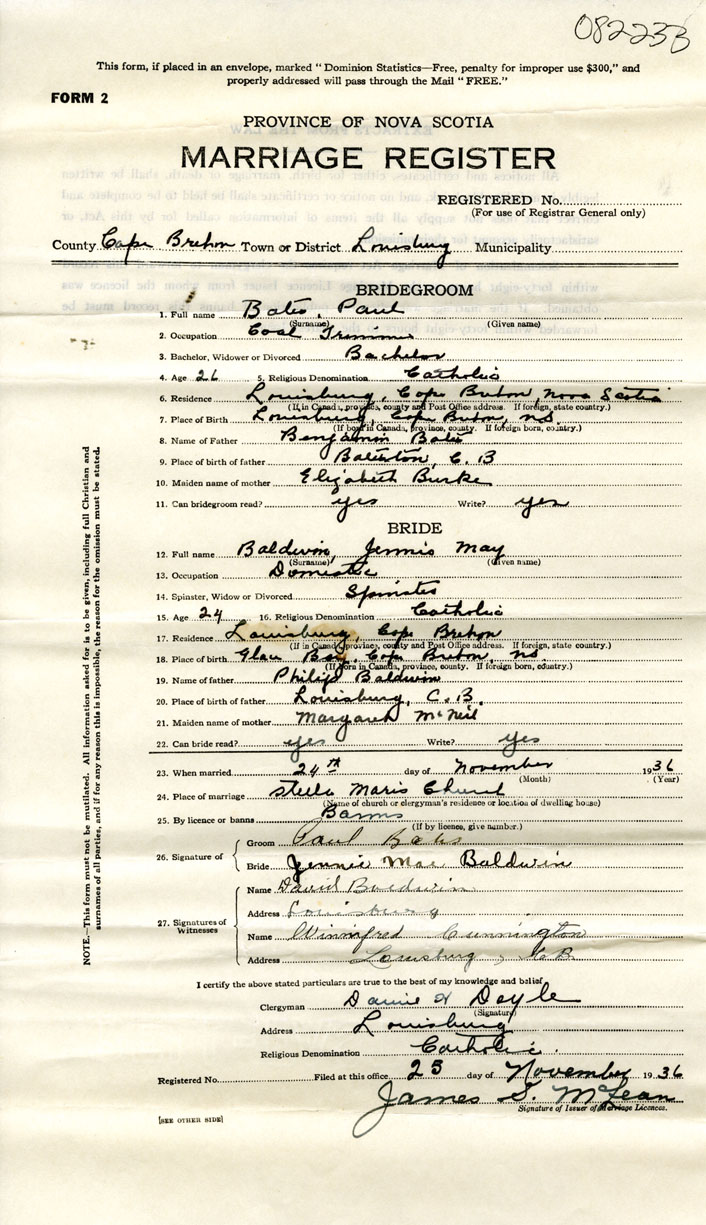 082233
This form, if placed in an envelope, marked "Dominion Statistics—Free, penalty for improper use $300," and
properly addressed will pass through the Mail "FREE."
FORM 2
PROVINCE OF NOVA SCOTIA
MARRIAGE REGISTER
REGISTERED No.
(For use of Registrar General only)
County Cape Breton Town or District Louisburg Municipality
BRIDEGROOM
1. Full name Bates, Paul
(Surname) (Given name)
2. Occupation Coal Trimmer
3. Bachelor, Widower or Divorced Bachelor
4. Age 26 5. Religious Denomination Catholic
6. Residence Louisburg, Cape Breton, Nova Scotia
(If in Canada, province, county and Post Office address. If foreign, state country.)
7. Place of Birth Louisburg, Cape Breton, N.S.
(If born in Canada, province, county. If foreign born, country.)
8. Name of Father Benjamin Bates
9. Place of birth of father Bateston, C. B
10. Maiden name of mother Elizabeth Burke
11. Can bridegroom read? yes Write? yes
BRIDE
12. Full name Baldwin, Jennie May
(Surname) (Given name)
13. Occupation Domestic
14. Spinster, Widow or Divorced Spinster
15. Age 24 16. Religious Denomination Catholic
17. Residence Louisburg, Cape Breton
(If in Canada, province, county and Post Office address. If foreign, state country.)
18. Place of birth Glace Bay, Cape Breton, N.S.
(If born in Canada, province, county. If foreign born, country.)
19. Name of father Philip Baldwin
20. Place of birth of father Louisburg, C. B.
21. Maiden name of mother Margaret McNeil
22. Can bride read? yes Write? yes
23. When married 24th day of November 1936
(Month) (Year)
24. Place of marriage Stella Maris Church
(Name of church or clergyman's residence or location of dwelling house)
25. By licence or banns Banns
(If by licence, give number.)
26. Signature of
Groom Paul Bates
Bride Jennie Mae Baldwin
27. Signatures of Witnesses
Name David Baldwin
Address Louisburg
Name Winnifred Cunnington
Address Louisburg, C.B.
I certify the above stated particulars are true to the best of my knowledge and belief
Clergyman Doyle
(Signature)
Address Louisburg
Religious Denomination Catholic.
Registered No. Filed at this office 25 day of November 1936
James S. McLean
Signature of Issuer of Marriage Licences.
[SEE OTHER SIDE]
NOTE.—This form must not be mutilated. All information asked for is to be given, including full Christian and
surnames of all parties, and if for any reason this is impossible, the reason for the omission must be stated.